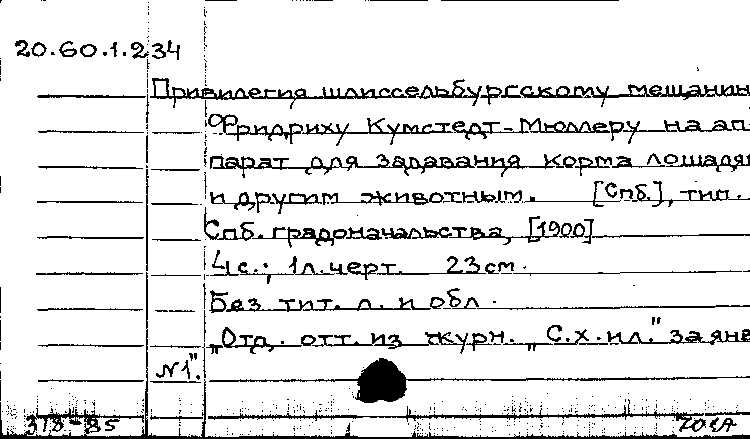 20.60.1.234
Привилегия шлиссельбургскому мещанин
Фридриху Кумстедт-Мюллеру на ап-
парат для задавания корма лошадя
и другим животным. [Спб.], тип.
Спб. градоначальства, [1900]
4 с.; 1 л. черт. 23 см.
Без тит. л. и обл.
„Отд. отт. из журн. „С.х.ил." за янв
№1".
318-85